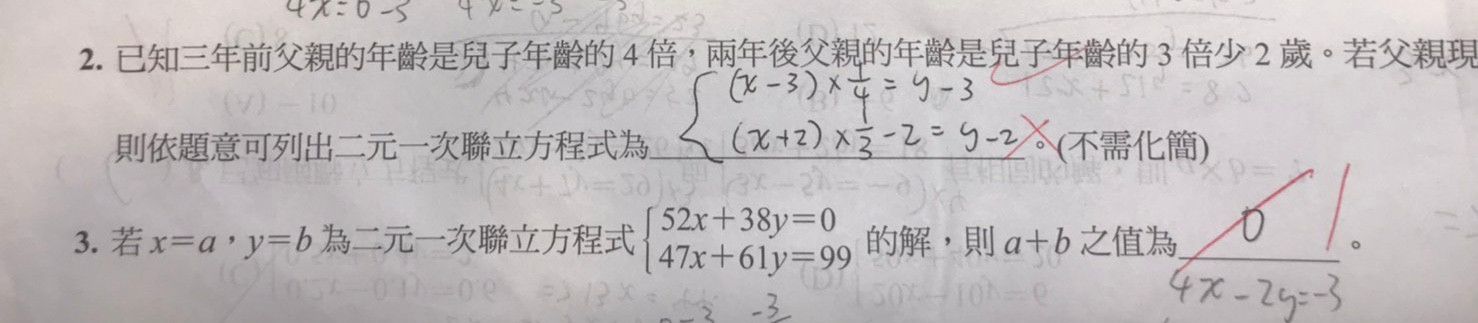 4x=0-3
2. 已知三年前父親的年齡是兒子年齡的4倍，兩年後父親的年齡是兒子年齡的3倍少2歲。若父親現
(x-3)×1/4=y-3
則依題意可列出二元一次聯立方程式為 (x+2)×1/3-2=y-2。(不需化簡)
52x+38y=0
3. 若x=a，y=b為二元一次聯立方程式 的解，則a+b之值為 0 1。
47x+61y=99
4x-2y=-3
-3